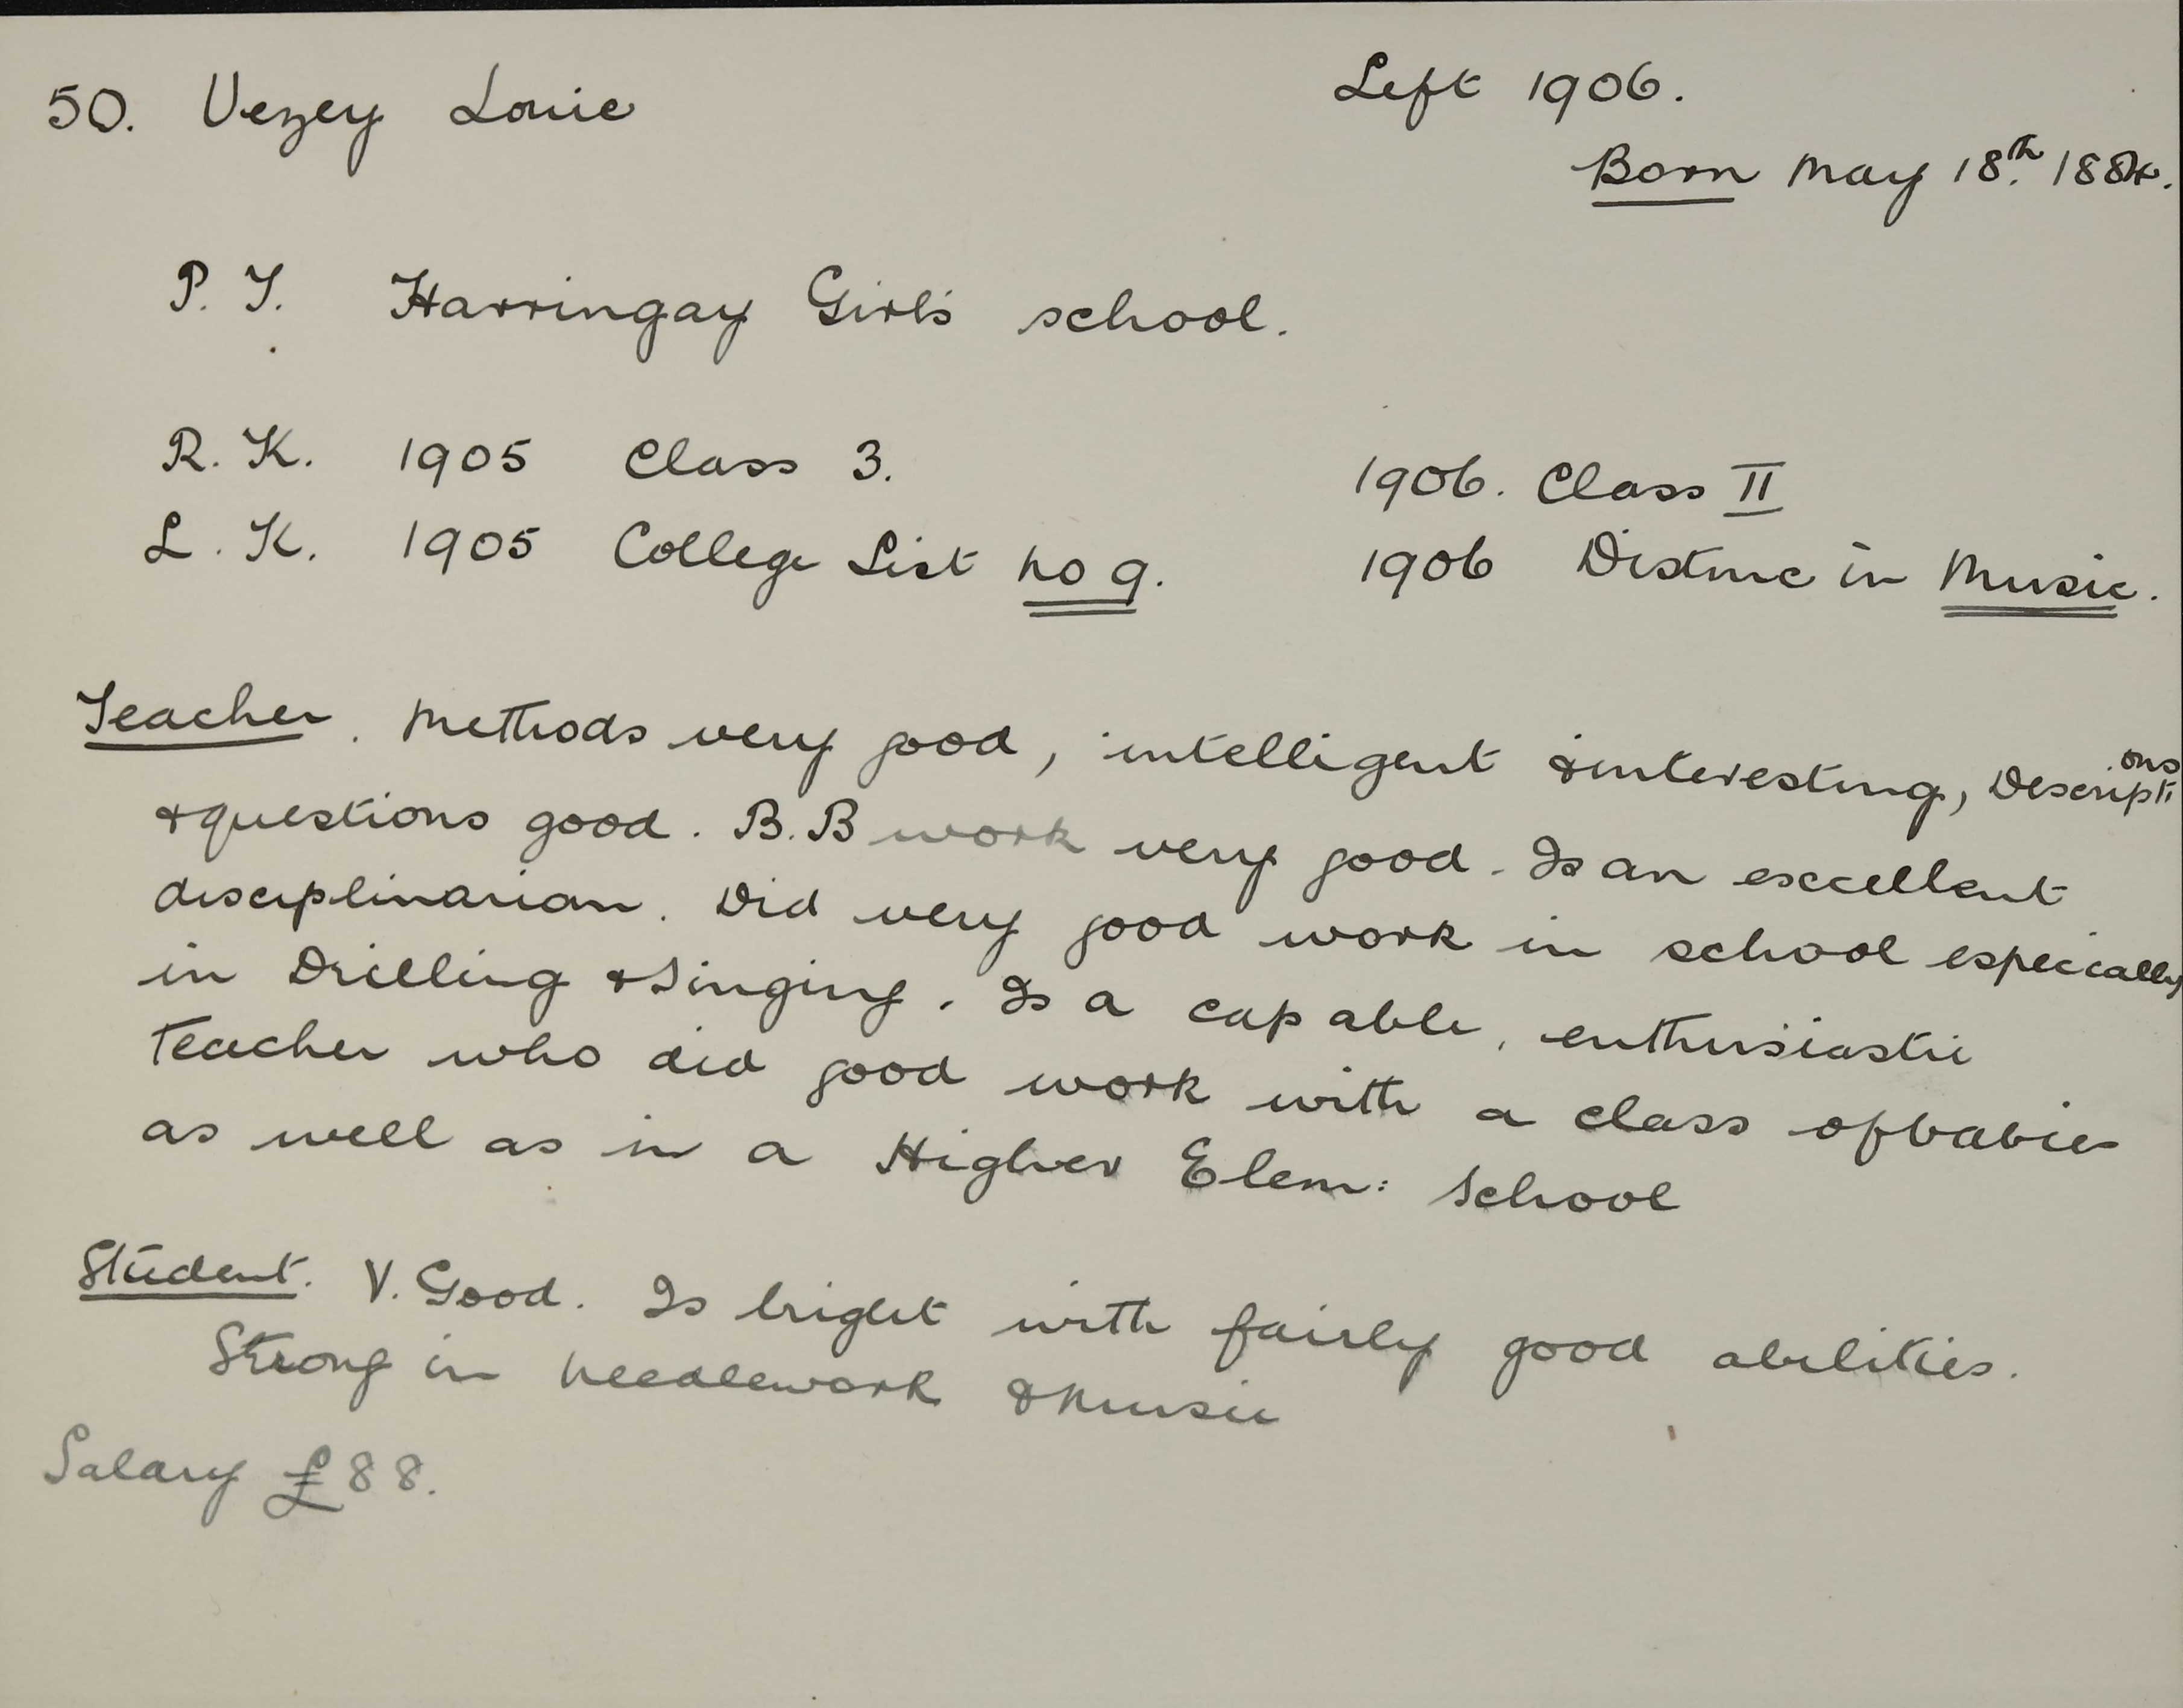 50. Vezey Louie Left 1906.
Born May 18th. 1884.
P. T. Harringay Girls' school.
R. K. 1905 Class 3. 1906. Class II
L. K. 1905 College List no 9. 1906 Distinc in Music.
Teacher. Methods very good, intelligent & interesting, Descriptions
& questions good. B.B work very good. Is an excellent
disciplinarian. Did very good work in school especially
in Drilling & Singing. Is a capable, enthusiastic
teacher who did good work with a class of babies
as well as in a Higher Elem: School
Student. V. Good. Is bright with fairly good abilities.
Strong in needlework & music
Salary £88.